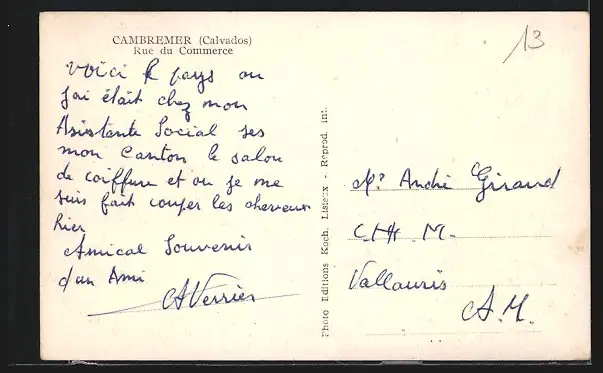 CAMBREMER (Calvados)
Rue du Commerce
Voici le pays ou
j'ai était chez mon
Asistante Social ses
mon Canton le salon
de coiffure et ou je me
suis fait couper les cheveux
hier
Amical Souvenir
d'un Ami
A Verrier
Photo Editions Koch, Lisieux - Reprod. int.
13
Mr André Giraud
C.H.M.
Vallauris
A.M.